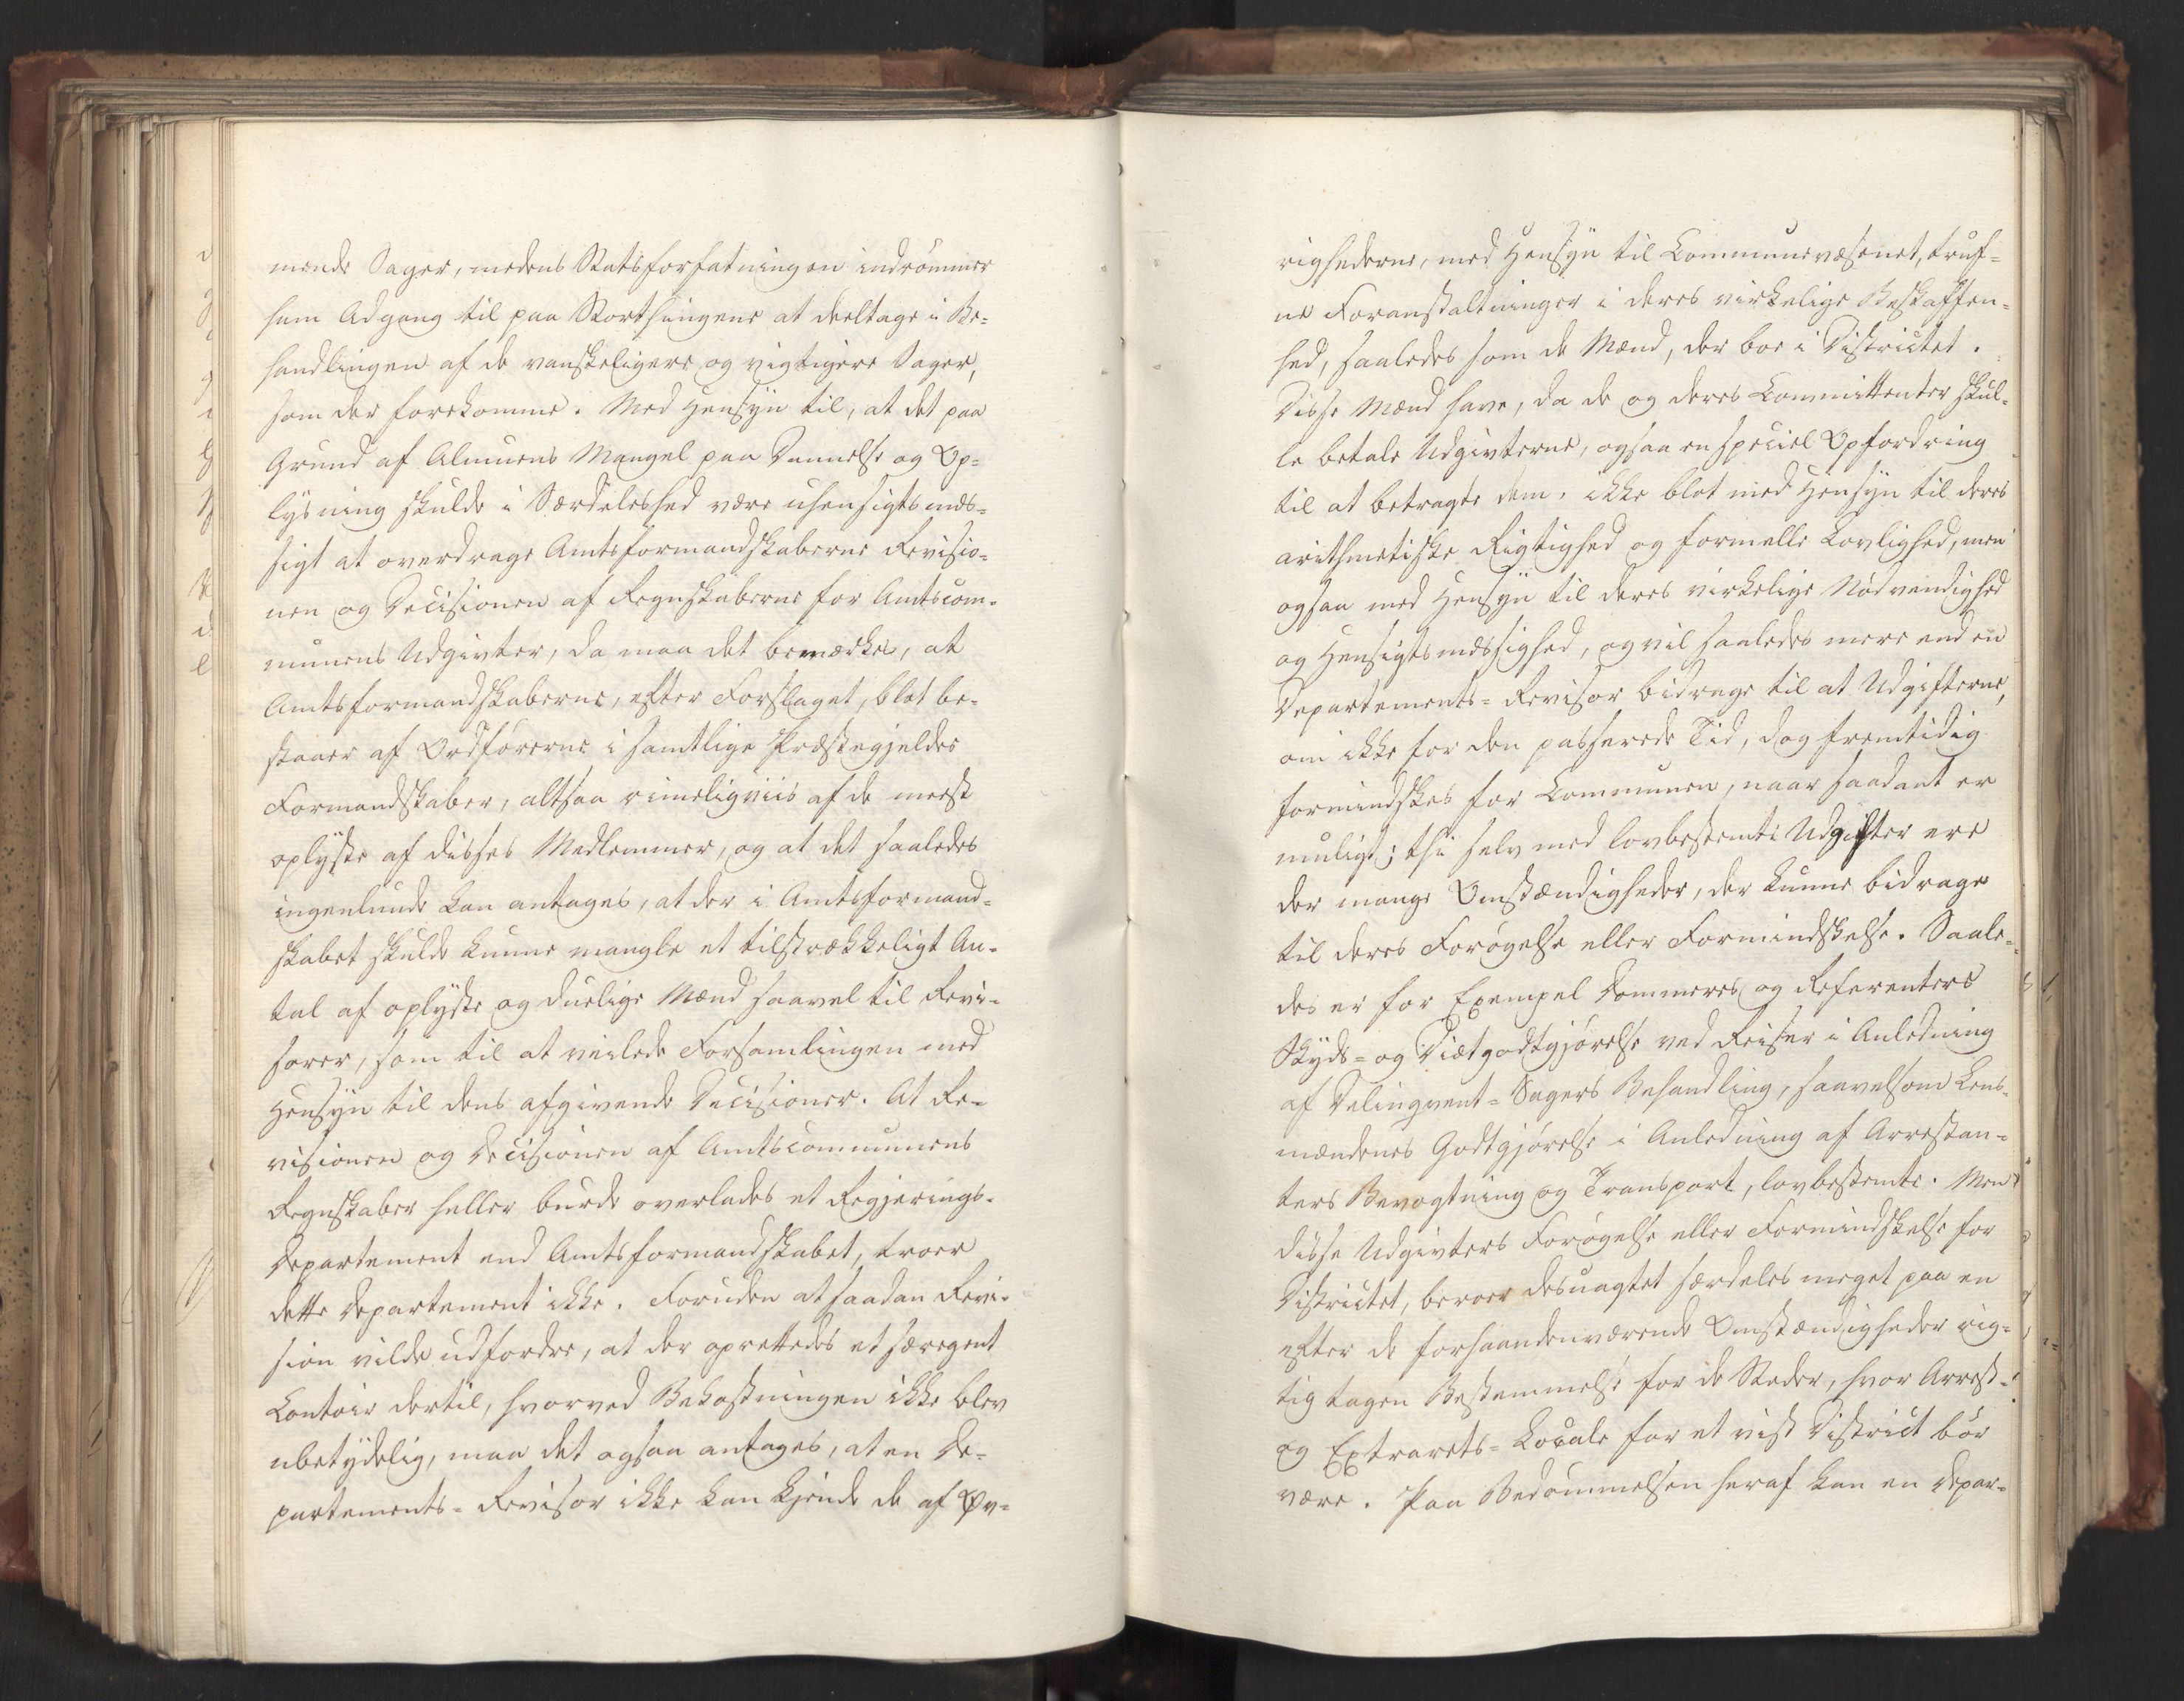 mende Sager, medens Statsforfatningen indrømmer
ham Adgang til paa Storthingene at deeltage i Be=
handlingen af de vanskeligere og vigtigere Sager,
som der forekomme. Med Hensyn til, at det paa
Grund af Almuens Mangel paa Dannelse og Op=
lysning skulde i Særdeleshed være uhensigtsmæs=
sigt at overdrage Amtsformandskaberne Revisio=
nen og Decisionen af Regnskaberne for Amtscom=
munens Udgivter, da maa det bemærkes, at
Amtsformandskaberne, efter Forslaget, blot be=
staaer af Ordførerne i samtlige Præstegjeldes
Formandskaber, altsaa rimeligviis af de meest
oplyste af disses Medlemmer, og at det saaledes
ingenlunde kan antages, at der i Amtsformand=
skabet skulde kunne mangle et tilstrækkeligt An=
tal af oplyste og duelige Mænd saavel til Revi=
sorer, som til at veilede Forsamlingen med
Hensyn til dens afgivende Decisioner. At Re=
visionen og Decisionen af Amtscommunens
Regnskaber heller burde overlades et Regjerings=
Departement end Amtsformandskabet, troer
dette Departement ikke. Foruden at saadan Revi=
sion vilde udfordre, at der oprettedes et særegent
Contoir dertil, hvorved Bekostningen ikke blev
ubetydelig, maa det ogsaa antages, at en De=
partements=Revisor ikke kan kjende de af Øv=
righederne, med Hensyn til Communevæsenet, truf=
ne Foranstaltninger i deres virkelige Beskaffen=
hed, saaledes som de Mænd, der boe i Districtet.
Disse Mænd have, da de og deres Committenter skul=
le betale Udgivterne, ogsaa en speciel Opfordring
til at betragte dem, ikke blot med Hensyn til deres
arithmetiske Rigtighed og formelle Lovlighed, men
ogsaa med Hensyn til deres virkelige Nødvendighed
og Hensigtsmæssighed, og vil saaledes mere end en
Departements=Revisor bidrage til at Udgifterne,
om ikke for den passerede Tid, dog fremtidig
formindskes for Communen, naar saadant er
muligt; thi selv med lovbestemte Udgifter ere
der mange Omstændigheder, der kunne bidrage
til deres Forøgelse eller Formindskelse. Saale=
des er for Exempel Dommeres og Referenters
Skyds= og Diætgodtgjørelse ved Reiser i Anledning
af Delinqvent=Sagers Behandling, saavelsom Lens=
mændenes Godtgjørelse i Anledning af Arrestan=
ters Bevogtning og Transport, lovbestemte. Men
disse Udgivters Forøgelse eller Formindskelse for
Districtet, beroer desuagtet særdeles meget paa en
efter de forhaandenværende Omstændigheder rig=
tig tagen Bestemmelse for de Steder, hvor Arrest=
og Extrarets=Locale for et vist District bør
være. Paa Bedømmelsen heraf kan en Depar=